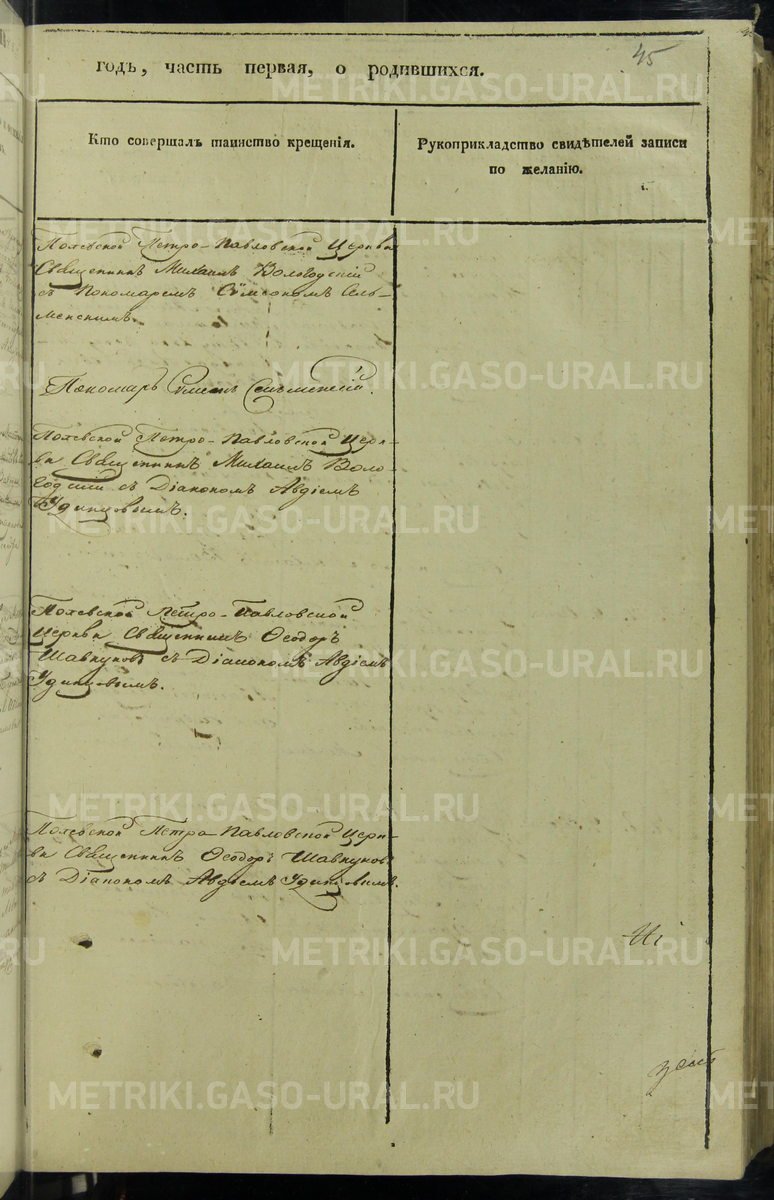 45
годъ, часть первая, о родившихся.
Кто совершалъ таинство крещенія.
Рукоприкладство свидѣтелей записи
по желанію.
Полевской Петро-Павловской Церкви
Священникъ Михаилъ Вологодскій
съ Пономаремъ Сѵмеономъ Сель-
менскимъ.
Пономарь Сельменскій.
Полевской Петро-Павловской Церк-
ви Священникъ Михаилъ Воло-
годскій съ Діакономъ Авдіемъ
Удинцовымъ.
Полевской Петро-Павловской
Церкви Священникъ Ѳеодоръ
Шавкуновъ съ Діакономъ Авдіемъ
Удинцовымъ.
Полевской Петро-Павловской Церк-
ви Священникъ Ѳеодоръ Шавкуновъ
съ Діакономъ Авдіемъ Удинцовымъ.
METRIKI.GASO-URAL.RU